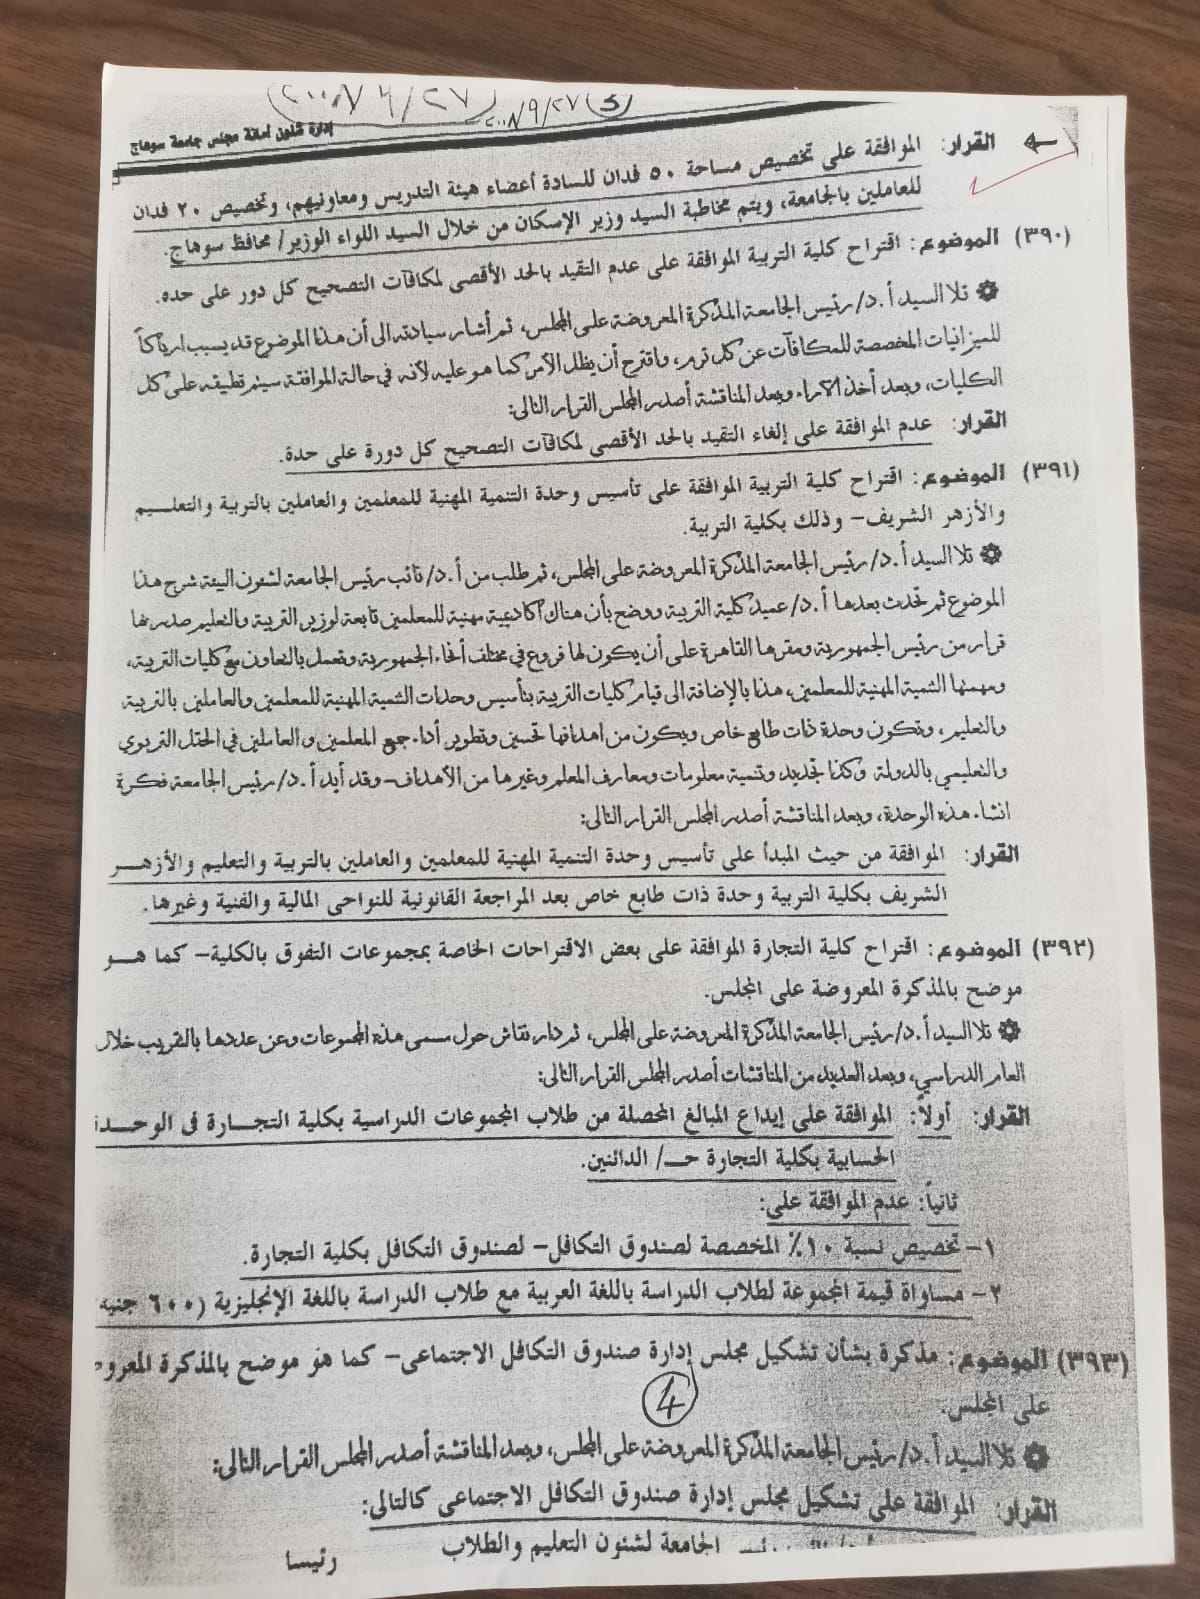 (٢٠٠٨/٩/٢٧) ٢٠٠٨/٩/٢٧ (5)
إدارة شئون أمانة مجلس جامعة سوهاج
القرار: الموافقة على تخصيص مساحة ٥٠ فدان للسادة أعضاء هيئة التدريس ومعاونيهم، وتخصيص ٢٠ فدان
للعاملين بالجامعة، ويتم مخاطبة السيد وزير الإسكان من خلال السيد اللواء الوزير/ محافظ سوهاج.
(٣٩٠) الموضوع: اقتراح كلية التربية الموافقة على عدم التقيد بالحد الأقصى لمكافآت التصحيح كل دور على حده.
۞ تلا السيد أ.د/ رئيس الجامعة المذكرة المعروضة على المجلس، ثم أشار سيادته الى أن هذا الموضوع قد يسبب ارباكاً
للميزانيات المخصصة للمكافآت عن كل ترم، واقترح أن يظل الأمر كما هو عليه لأنه في حالة الموافقة سيتم تطبيقه على كل
الكليات، وبعد أخذ الآراء وبعد المناقشة أصدر المجلس القرار التالى:
القرار: عدم الموافقة على إلغاء التقيد بالحد الأقصى لمكافآت التصحيح كل دورة على حدة.
(٣٩١) الموضوع: اقتراح كلية التربية الموافقة على تأسيس وحدة التنمية المهنية للمعلمين والعاملين بالتربية والتعلـيم
والأزهر الشريف- وذلك بكلية التربية.
۞ تلا السيد أ.د/ رئيس الجامعة المذكرة المعروضة على المجلس، ثم طلب من أ.د/ نائب رئيس الجامعة لشئون البيئة شرح هذا
الموضوع ثم تحدث بعدها أ.د/ عميد كلية التربية ووضح بأن هناك أكاديمية مهنية للمعلمين تابعة لوزير التربية والتعليم صدر بها
قرار من رئيس الجمهورية ومقرها القاهرة على أن يكون لها فروع في مختلف أنحاء الجمهورية وتعمل بالتعاون مع كليات التربية،
ومهمتها التنمية المهنية للمعلمين، هذا بالإضافة الى قيام كليات التربية بتأسيس وحدات التنمية المهنية للمعلمين والعاملين بالتربية
والتعليم، وتكون وحدة ذات طابع خاص ويكون من اهدافها تحسين وتطوير أداء جميع المعلمين والعاملين في الحقل التربوي
والتعليمي بالدولة وكذا تجديد وتنمية معلومات ومعارف المعلم وغيرها من الأهداف- وقد أيد أ.د/ رئيس الجامعة فكرة
انشاء هذه الوحدة، وبعد المناقشة أصدر المجلس القرار التالى:
القرار: الموافقة من حيث المبدأ على تأسيس وحدة التنمية المهنية للمعلمين والعاملين بالتربية والتعليم والأزهـر
الشريف بكلية التربية وحدة ذات طابع خاص بعد المراجعة القانونية للنواحى المالية والفنية وغيرها.
(٣٩٢) الموضوع: اقتراح كلية التجارة الموافقة على بعض الاقتراحات الخاصة بمجموعات التفوق بالكلية- كما هـو
موضح بالمذكرة المعروضة على المجلس.
۞ تلا السيد أ.د/ رئيس الجامعة المذكرة المعروضة على المجلس، ثم دار نقاش حول مسمى هذه المجموعات وعن عددها بالتقريب خلال
العام الدراسي، وبعد العديد من المناقشات أصدر المجلس القرار التالى:
القرار: أولاً: الموافقة على إيداع المبالغ المحصلة من طلاب المجموعات الدراسية بكلية التجـارة فى الوحـدة
الحسابية بكلية التجارة حـ/ الدائنين.
ثانياً: عدم الموافقة على:
١- تخصيص نسبة ١٠٪ المخصصة لصندوق التكافل- لصندوق التكافل بكلية التجارة.
٢- مساواة قيمة المجموعة لطلاب الدراسة باللغة العربية مع طلاب الدراسة باللغة الإنجليزية (٦٠٠ جنيه
(٣٩٣) الموضوع: مذكرة بشأن تشكيل مجلس إدارة صندوق التكافل الاجتماعى- كما هو موضح بالمذكرة المعروضة
على المجلس.
4
۞ تلا السيد أ.د/ رئيس الجامعة المذكرة المعروضة على المجلس، وبعد المناقشة أصدر المجلس القرار التالى:
القرار: الموافقة على تشكيل مجلس إدارة صندوق التكافل الاجتماعى كالتالى:
الجامعة لشئون التعليم والطلاب رئيسا